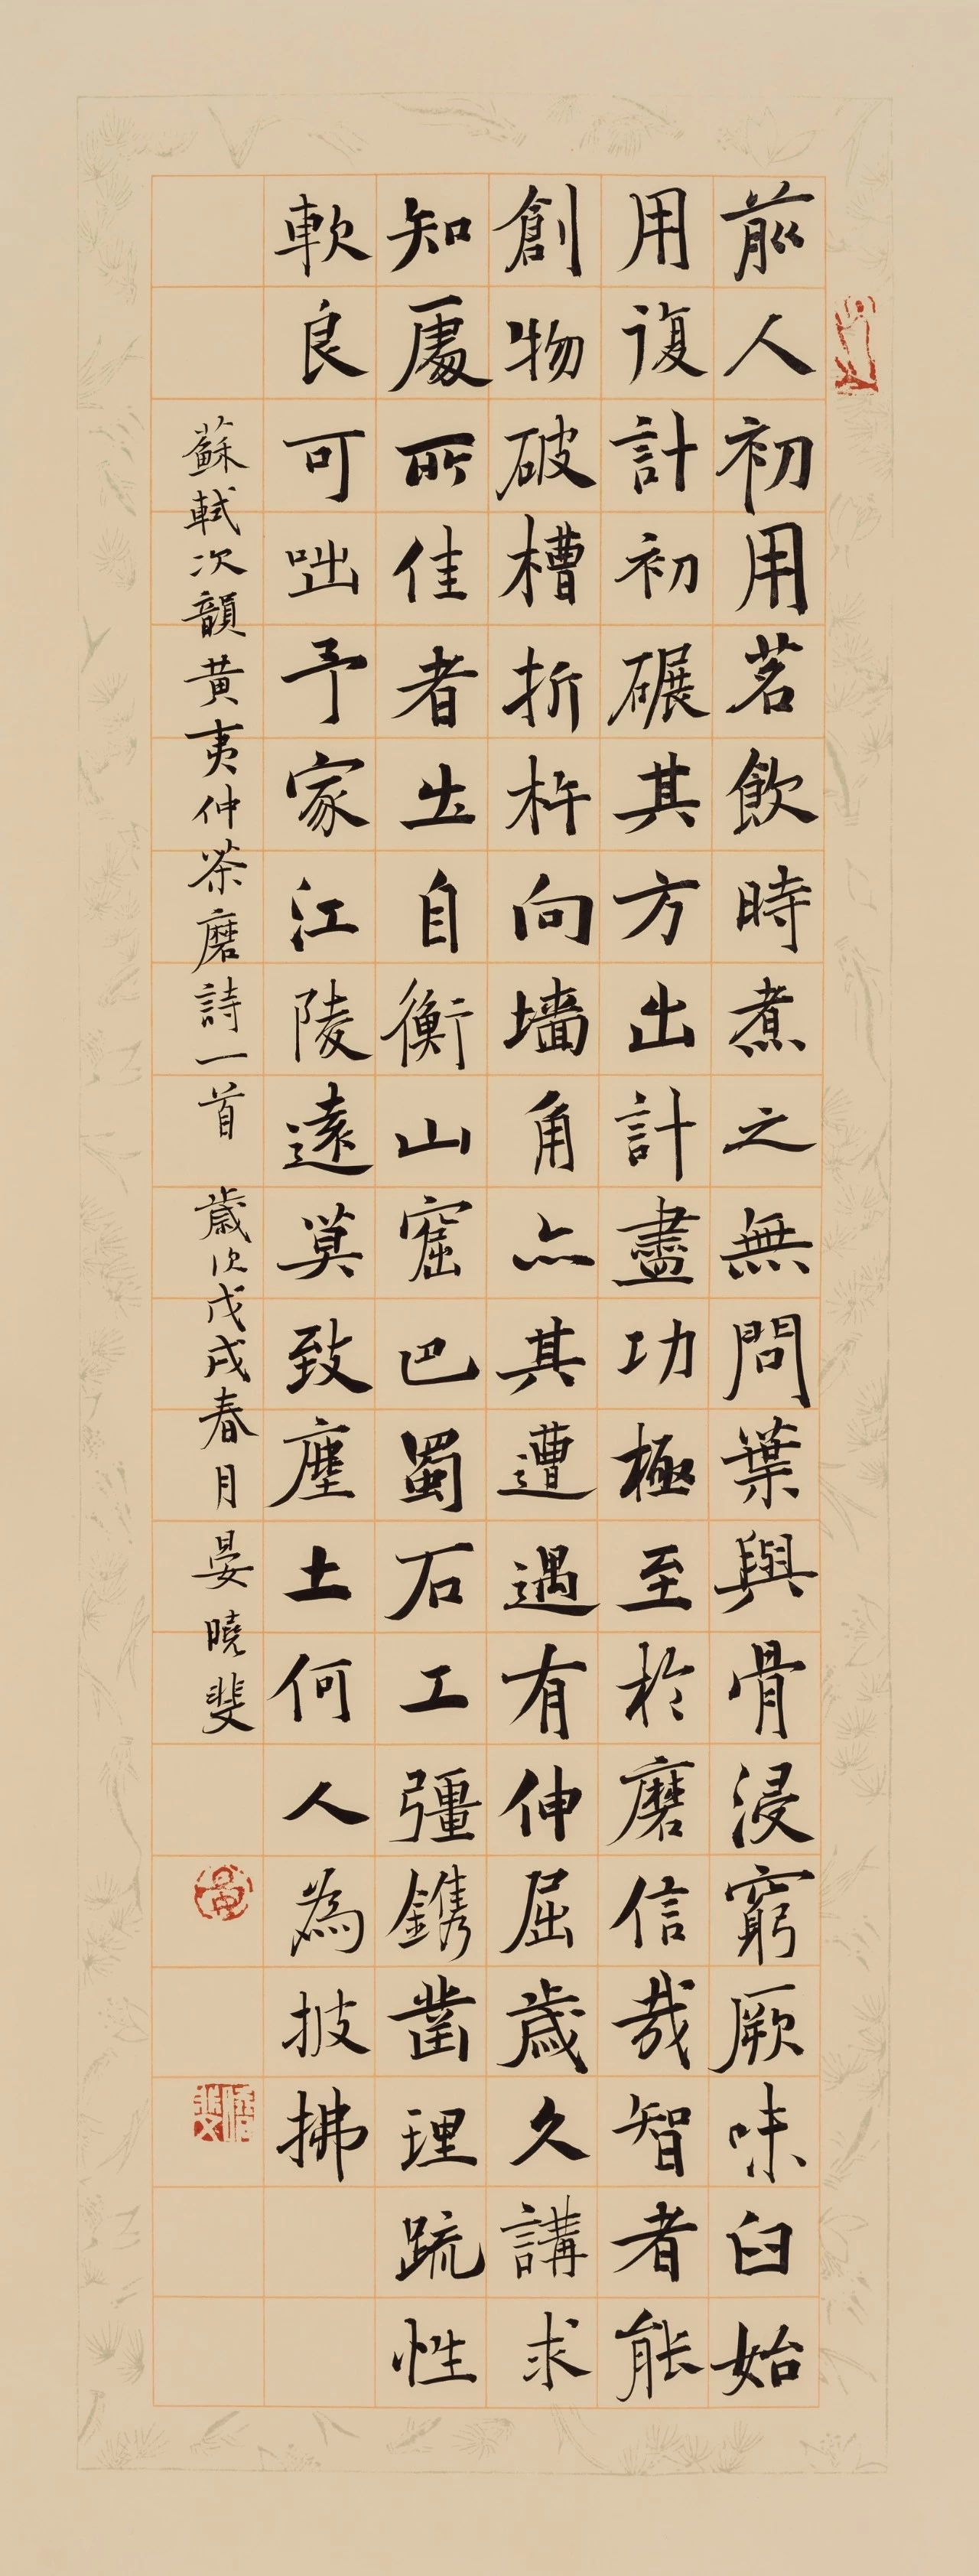 前人初用茗飲時煮之無問葉與骨浸窮厥味臼始
用復計初碾其方出計盡功極至於磨信哉智者能
創物破槽折杵向墻角亦其遭遇有伸屈歲久講求
知處所佳者出自衡山窟巴蜀石工彊鐫鑿理疏性
軟良可咄予家江陵遠莫致塵土何人為披拂
蘇軾次韻黃夷仲茶磨詩一首 歲次戊戌春月 晏曉斐